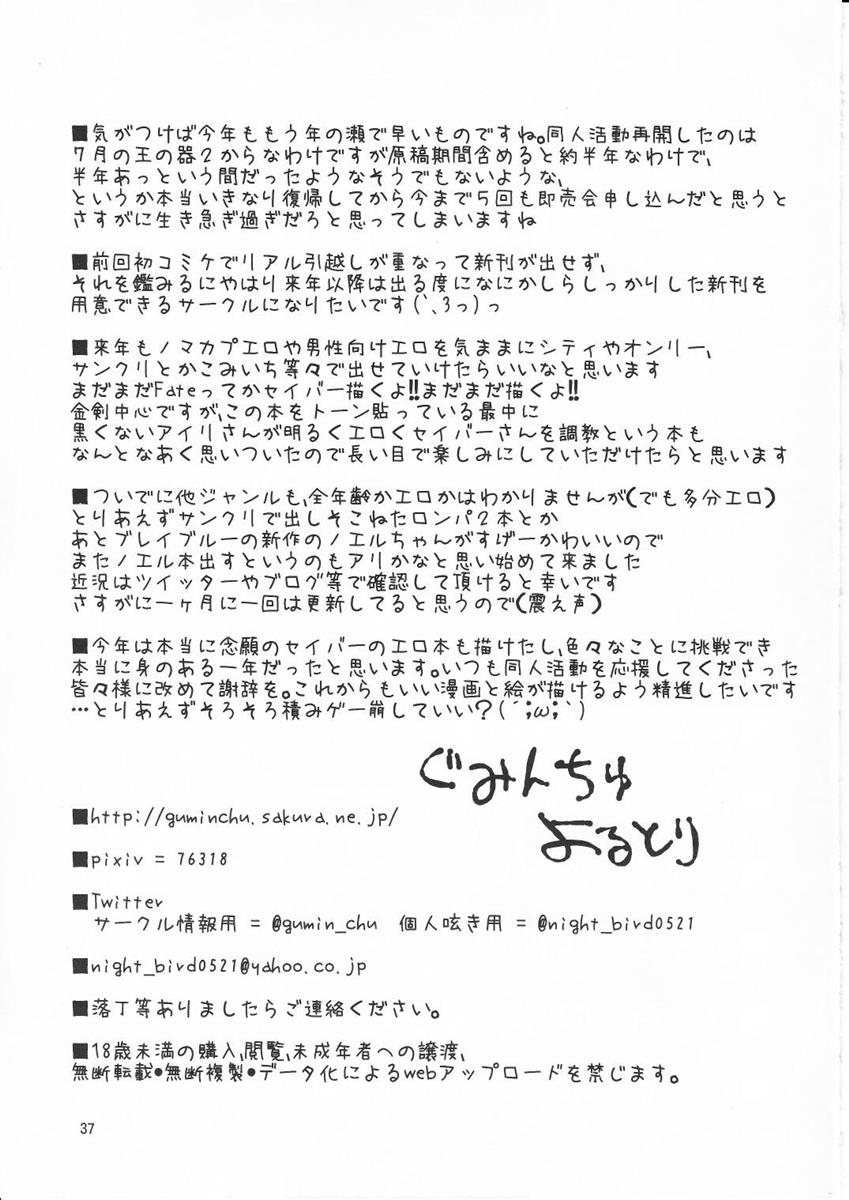 ■気がつけば今年ももう年の瀬で早いものですね。同人活動再開したのは
7月の王の器2からなわけですが原稿期間含めると約半年なわけで、
半年あっという間だったようなそうでもないような、
というか本当いきなり復帰してから今まで5回も即売会申し込んだと思うと
さすがに生き急ぎ過ぎだろと思ってしまいますね
■前回初コミケでリアル引越しが重なって新刊が出せず、
それを鑑みるにやはり来年以降は出る度になにかしらしっかりした新刊を
用意できるサークルになりたいです(`､3っ)っ
■来年もノマカプエロや男性向けエロを気ままにシティやオンリー、
サンクリとかこみいち等々で出せていけたらいいなと思います
まだまだFateってかセイバー描くよ!!まだまだ描くよ!!
金剣中心ですが、この本をトーン貼っている最中に
黒くないアイリさんが明るくエロくセイバーさんを調教という本も
なんとなあく思いついたので長い目で楽しみにしていただけたらと思います
■ついでに他ジャンルも、全年齢かエロかはわかりませんが(でも多分エロ)
とりあえずサンクリで出しそこねたロンパ2本とか
あとブレイブルーの新作のノエルちゃんがすげーかわいいので
またノエル本出すというのもアリかなと思い始めて来ました
近況はツイッターやブログ等で確認して頂けると幸いです
さすがに一ヶ月に一回は更新してると思うので(震え声)
■今年は本当に念願のセイバーのエロ本も描けたし、色々なことに挑戦でき
本当に身のある一年だったと思います。いつも同人活動を応援してくださった
皆々様に改めて謝辞を。これからもいい漫画と絵が描けるよう精進したいです
…とりあえずそろそろ積みゲー崩していい?(´;ω;`)
ぐみんちゅ
よるとり
■http://guminchu.sakura.ne.jp/
■pixiv = 76318
■Twitter
サークル情報用 = @gumin_chu 個人呟き用 = @night_bird0521
■night_bird0521@yahoo.co.jp
■落丁等ありましたらご連絡ください。
■18歳未満の購入、閲覧、未成年者への譲渡、
無断転載•無断複製•データ化によるwebアップロードを禁じます。
37